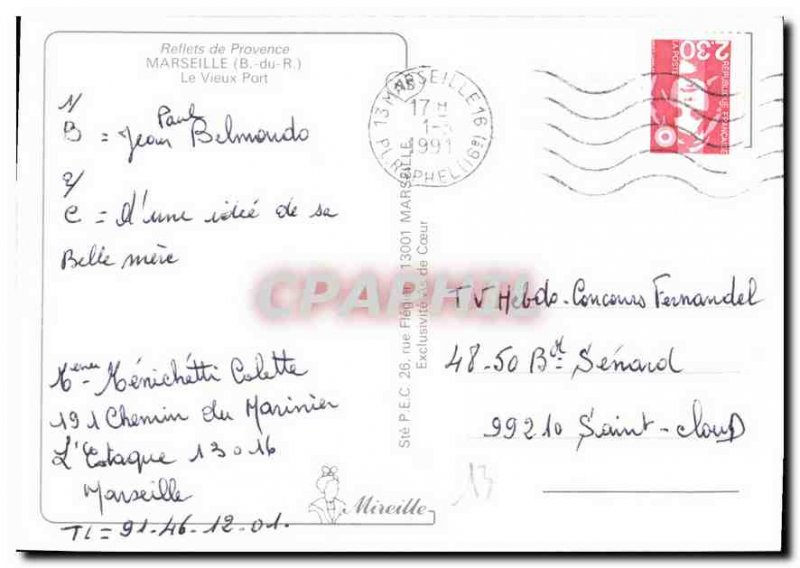 Reflets de Provence
MARSEILLE (B.-du-R.)
Le Vieux Port
1/
B = Jean Paul Belmondo
2/
C = d'une idée de sa
Belle mère
Ménichetti Colette
191 Chemin du Marinier
L'Estaque 13016
Marseille
TL = 91-46-12-01.
Mireille
Sté P.E.C. 26, rue 13001 MARSEILLE
Exclusivité As de Cœur
13 MARSEILLE 16
17 H
1-
1991
2,30
LA POSTE
REPUBLIQUE FRANCAISE
CPAPHIL
TV Hebdo-Concours Fernandel
48-50 Bd Sénard
99210 Saint-cloud
13